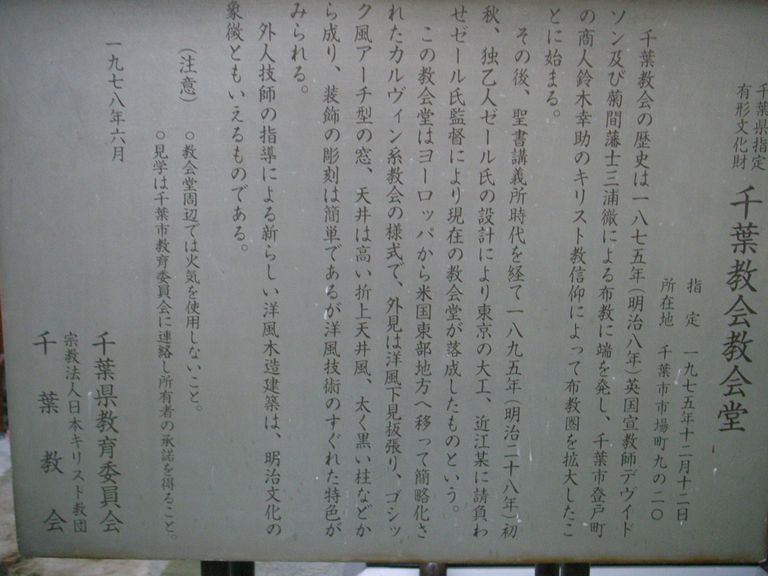 千葉県指定
有形文化財
千葉教会教会堂
指定 一九七五年十二月十二日
所在地 千葉市市場町九の二〇
千葉教会の歴史は一八七五年(明治八年)英国宣教師デヴイド
ソン及び菊間藩士三浦徹による布教に端を発し、千葉市登戸町
の商人鈴木幸助のキリスト教信仰によって布教圏を拡大したこ
とに始まる。
その後、聖書講義所時代を経て一八九五年(明治二十八年)初
秋、独乙人ゼール氏の設計により東京の大工、近江某に請負わ
せゼール氏監督により現在の教会堂が落成したものという。
この教会堂はヨーロッパから米国東部地方へ移って簡略化さ
れたカルヴィン系教会の様式で、外見は洋風下見扳張り、ゴシッ
ク風アーチ型の窓、天井は高い折上天井風、太く黒い柱などか
ら成り、装飾の彫刻は簡単であるが洋風技術のすぐれた特色が
みられる。
外人技師の指導による新らしい洋風木造建築は、明治文化の
象徴ともいえるものである。
(注意) ○教会堂周辺では火気を使用しないこと。
○見学は千葉市教育委員会に連絡し所有者の承諾を得ること。
一九七八年六月
千葉県教育委員会
宗教法人日本キリスト教団
千葉教会